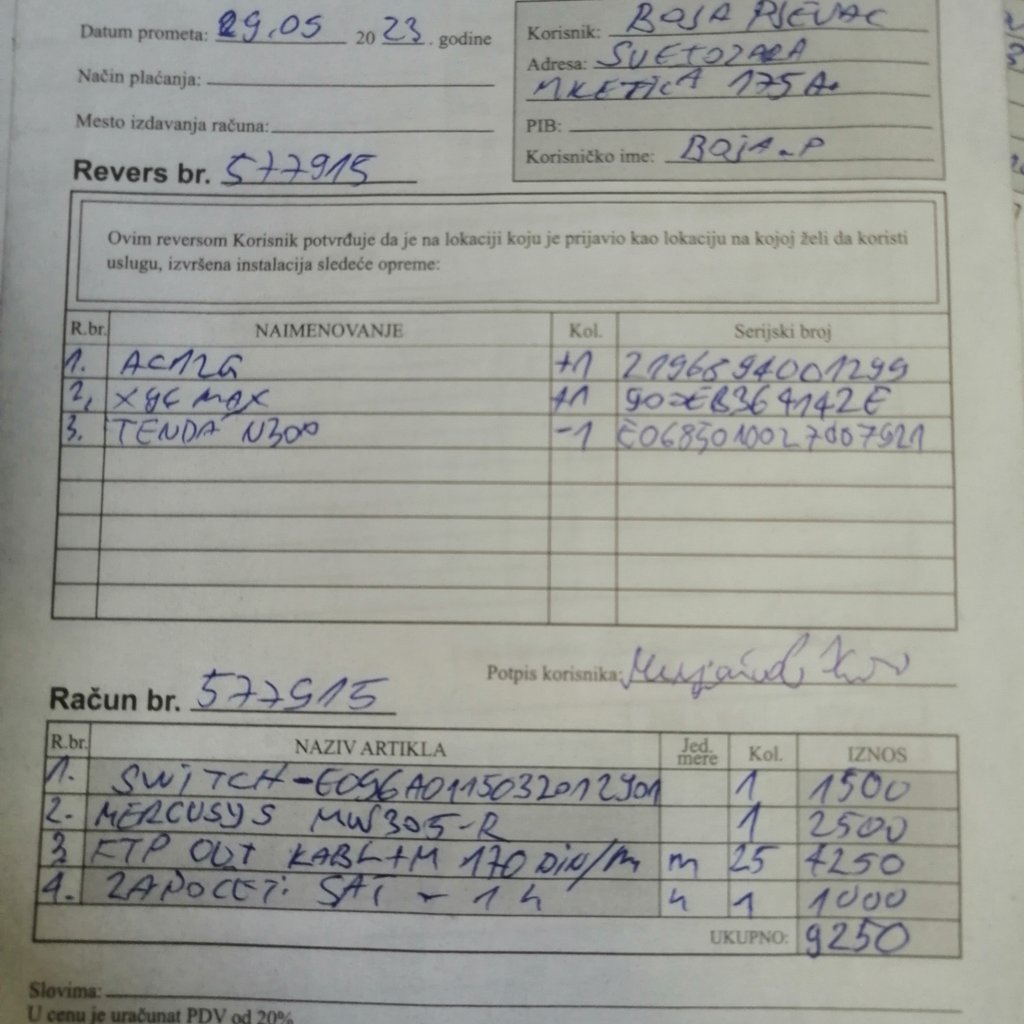 Datum prometa: 29.05 2023. godine
Način plaćanja:
Mesto izdavanja računa:
Revers br. 577915
Korisnik: BOJA PJEVAC
Adresa: SVETOZARA
MKETIĆA 175A.
PIB:
Korisničko ime: BOJA.P
Ovim reversom Korisnik potvrđuje da je na lokaciji koju je prijavio kao lokaciju na kojoj želi da koristi
uslugu, izvršena instalacija sledeće opreme:
R.br. NAIMENOVANJE Kol. Serijski broj
1. AC12G +1 2196594001299
2, +1
3. TENDA N300 -1 E0685010027007921
Potpis korisnika:
Račun br. 577915
R.br. NAZIV ARTIKLA Jed. mere Kol. IZNOS
1. SWITCH-E096A0115032012901 1 1500
2. MERCUSYS MW305-R 1 2500
3 FTP OUT KABL+M 170 DIN/m m 25 4250
4. ZAPOČETI SAT - 1 h h 1 1000
UKUPNO: 9250
Slovima:
U cenu je uračunat PDV od 20%